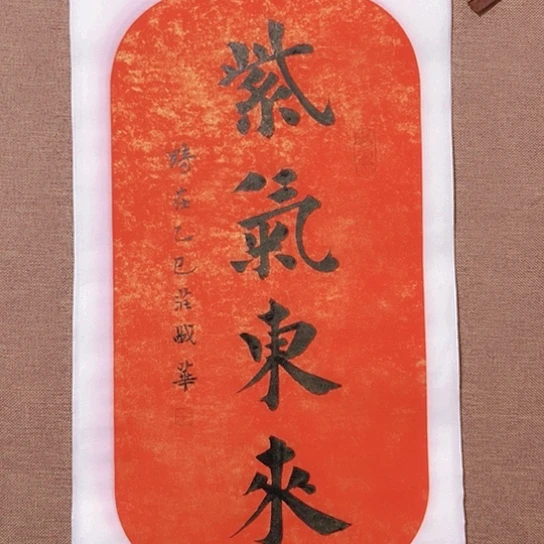 紫氣東來
歲在乙巳莊威華